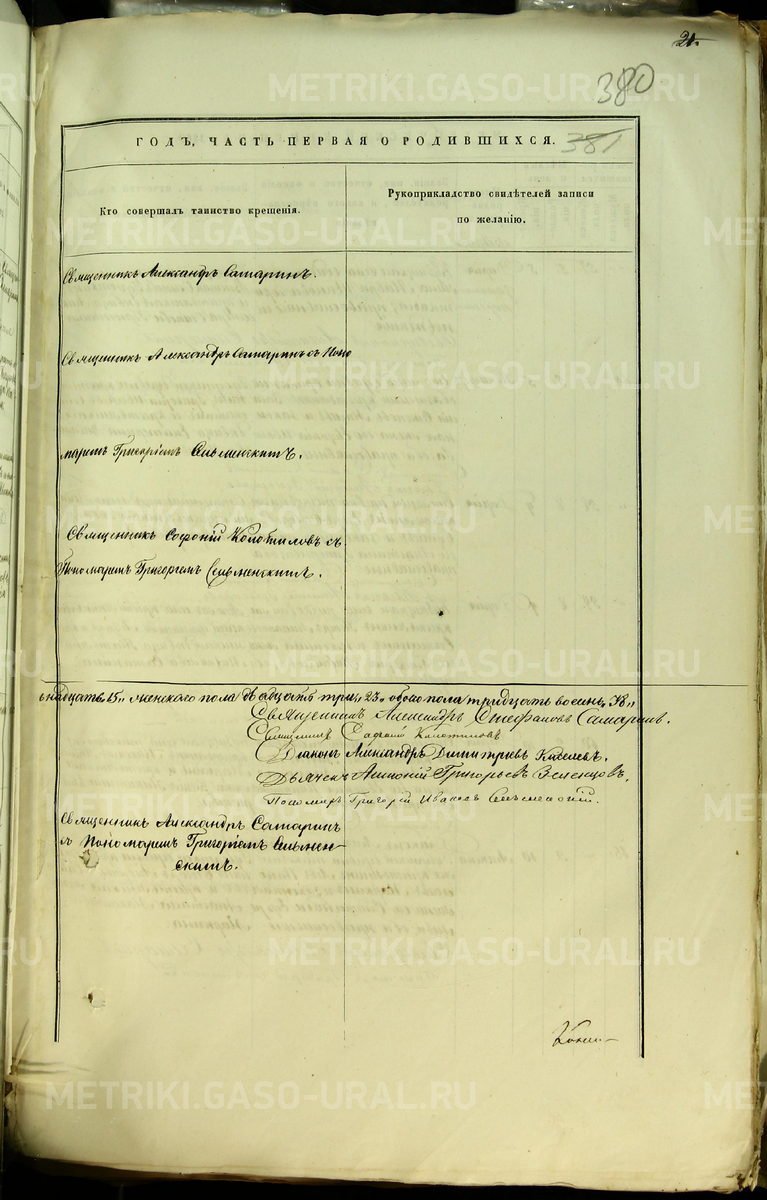 21.
380
ГОДЪ, ЧАСТЬ ПЕРВАЯ О РОДИВШИХСЯ.
381
Кто совершалъ таинство крещенія.
Рукоприкладство свидѣтелей записи
по желанію.
Священникъ Александръ Самаринъ.
Священникъ Александръ Самаринъ съ Поно
маремъ Григоріемъ
Священникъ Софоній Колотиловъ съ
Пономаремъ Григоріемъ
надцать 15" женского пола двадцать три" 23" обоего пола тридцать восемь 38"
Священникъ Александръ Стефановъ Самаринъ.
Священникъ Софоній Колотиловъ
Діаконъ Александръ Димитріевъ Киселевъ.
Дьячекъ Григорьевъ Зеленцовъ.
Пономарь Григорій Ивановъ
Священникъ Александръ Самаринъ
съ Пономаремъ Григоріемъ
METRIKI.GASO-URAL.RU